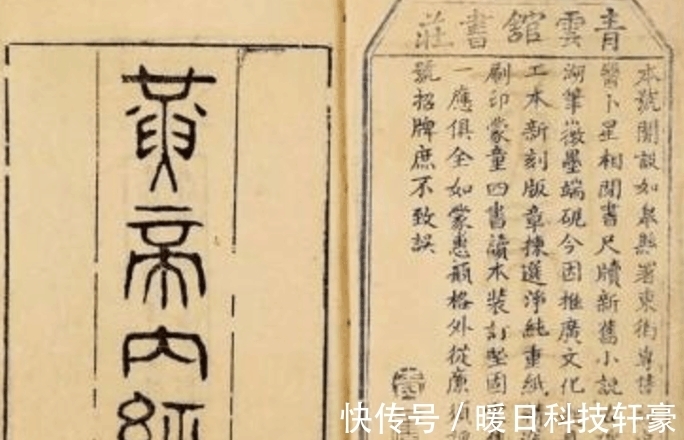 青雲舘書莊
本號開設如皋縣署東街專售
醫卜星相閒書尺牘新舊小說
湖筆徽墨端硯今因推廣文化
工本新刻版章揀選淨純重紙
刷印蒙童四書讀本裝訂堅固
一應俱全如蒙惠顧格外從廉
號招牌庶不致誤
黃帝內經
快传号 / 暖日科技轩豪